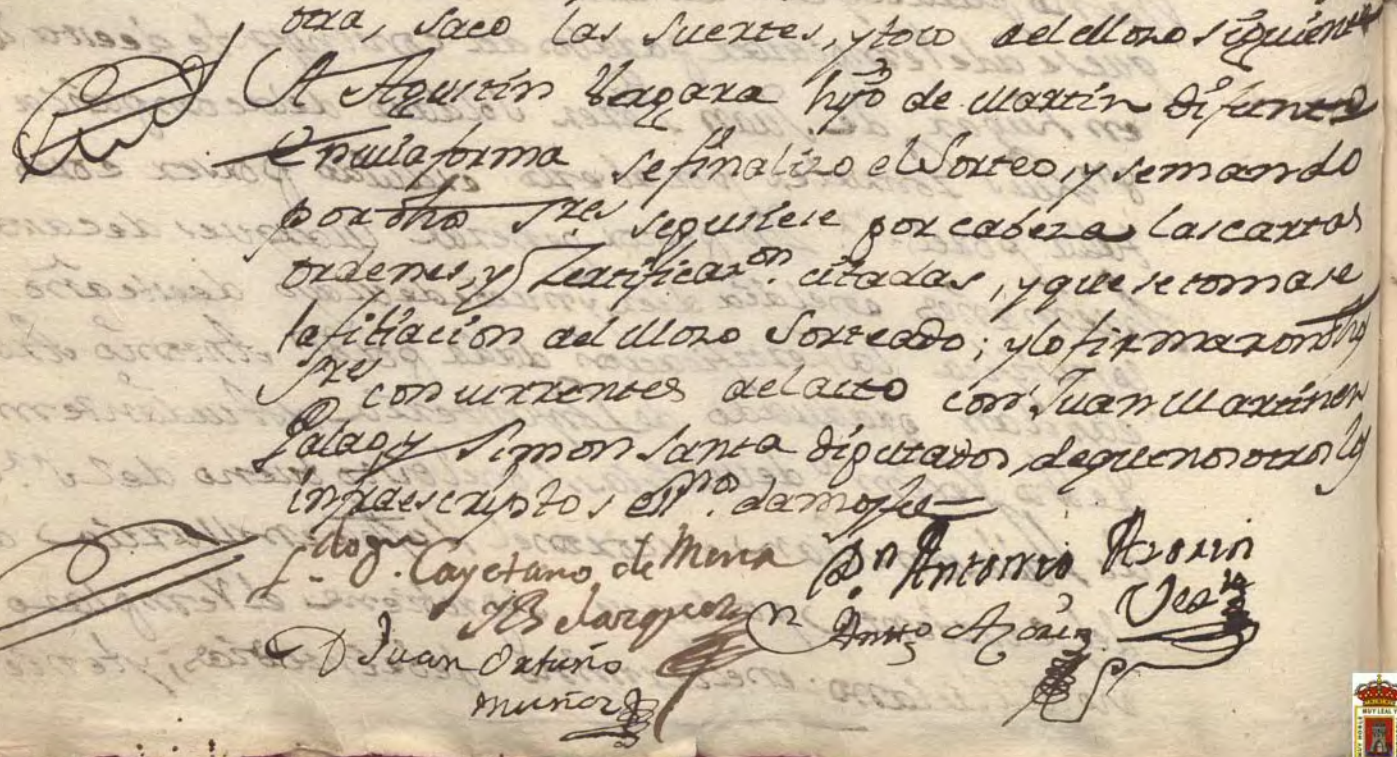 otra, saco las suertes, y toco del Mozo siguiente
A Agustín Vergara hijo de Martín Difunto
En cuia forma se finalizo el Sorteo, y se mando
por dhos Sres se pusiese por cabeza las cartas
ordenes, y Zertificazon. citadas, y que se tomase
la filiación del Mozo Sorteado; y lo firmaron dhos
Sres concurrentes del acto con Juan Martinez
Palao, y Simon Santa diputados, de que nosotros los
infraescriptos essnos. damos fee=
Ldo Dn. Cayetano de Mera Dn Antonio Azorin
Dn Antto Azorin
D Juan Ortuño
Muñoz
MUY NOBLE MUY LEAL Y